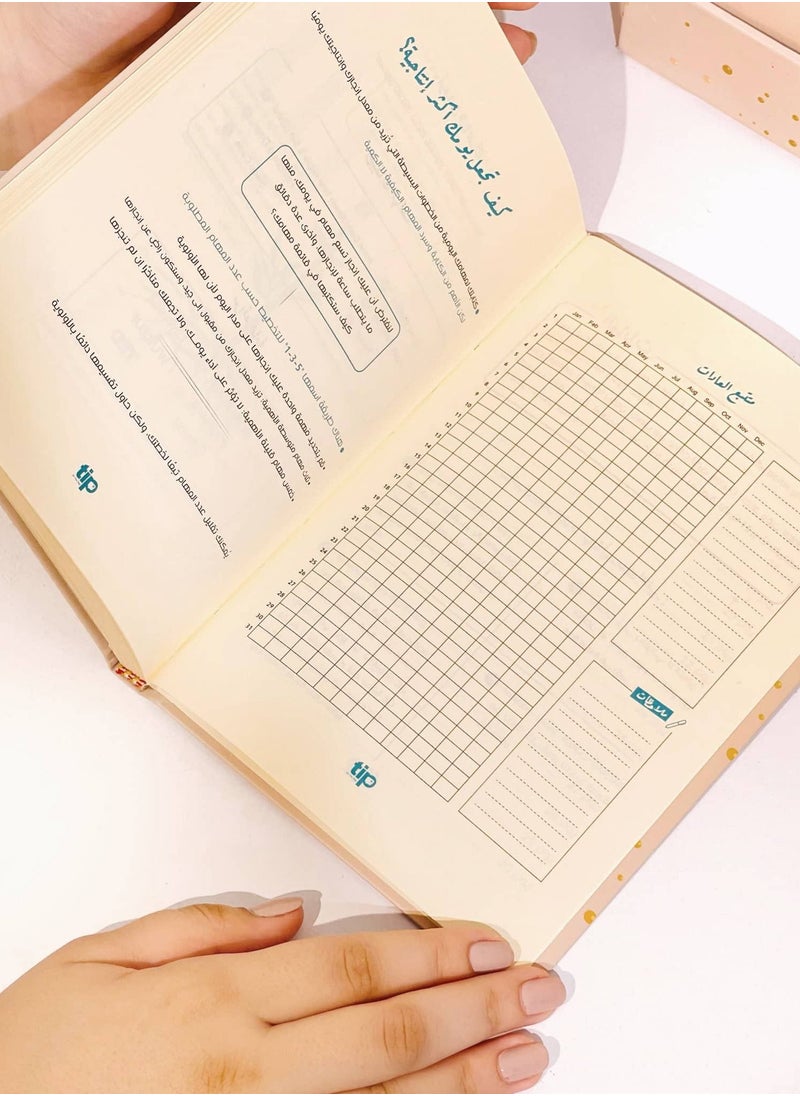 كيف تجعل يومك أكثر إنتاجية؟
كتابتك لمهامك اليومية من الخطوات البسيطة التي تُزيد من معدل إنجازك وإنتاجيتك يوميًا
لكن الأهم من الكتابة وسرد المهام: الكيفية لا الكمية
لنفترض أن عليك إنجاز تسع مهام في يومك، منها
ما يتطلب ساعة لإنجازها، وأخرى عدة دقائق
كيف ستكتبها في قائمة مهامك؟
هناك طريقة اسمها "5-3-1" للتخطيط حسب عدد المهام المطلوبة
قم بتحديد مهمة واحدة عليك إنجازها على مدار اليوم لأن لها الأولوية
ثلاث مهام متوسطة الأهمية: تزيد معدل إنجازك من مقبول إلى جيد وستكون راضٍ عن إنجازها
خمس مهام قليلة الأهمية: لا تؤثر على أداء يومك، ولا تجعلك متأخرًا إن لم تنجزها
يُمكنك تقليل عدد المهام تبعًا لخطتك، ولكن حاول تقسيمها دائمًا بالأولوية
tip
متتبع العادات
Jan Feb Mar Apr May Jun Jul Aug Sep Oct Nov Dec
1
2
3
4
5
6
7
8
9
10
11
12
13
14
15
16
17
18
19
20
21
22
23
24
25
26
27
28
29
30
31
ملاحظات
tip